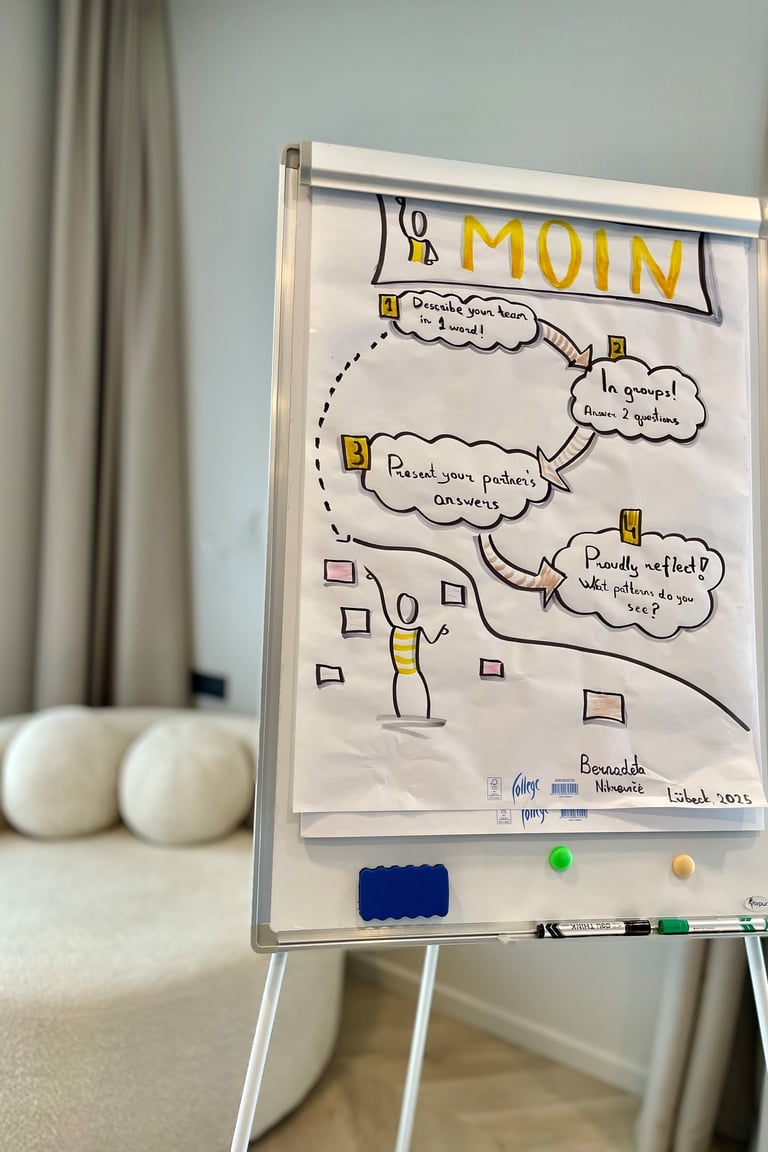 MOIN
1 Describe your team
in 1 word!
2
In groups!
Answer 2 questions
3
Present your partner's
answers
4
Proudly reflect!
What patterns do you
see?
Bernadeta
Lübeck, 2025
College
College